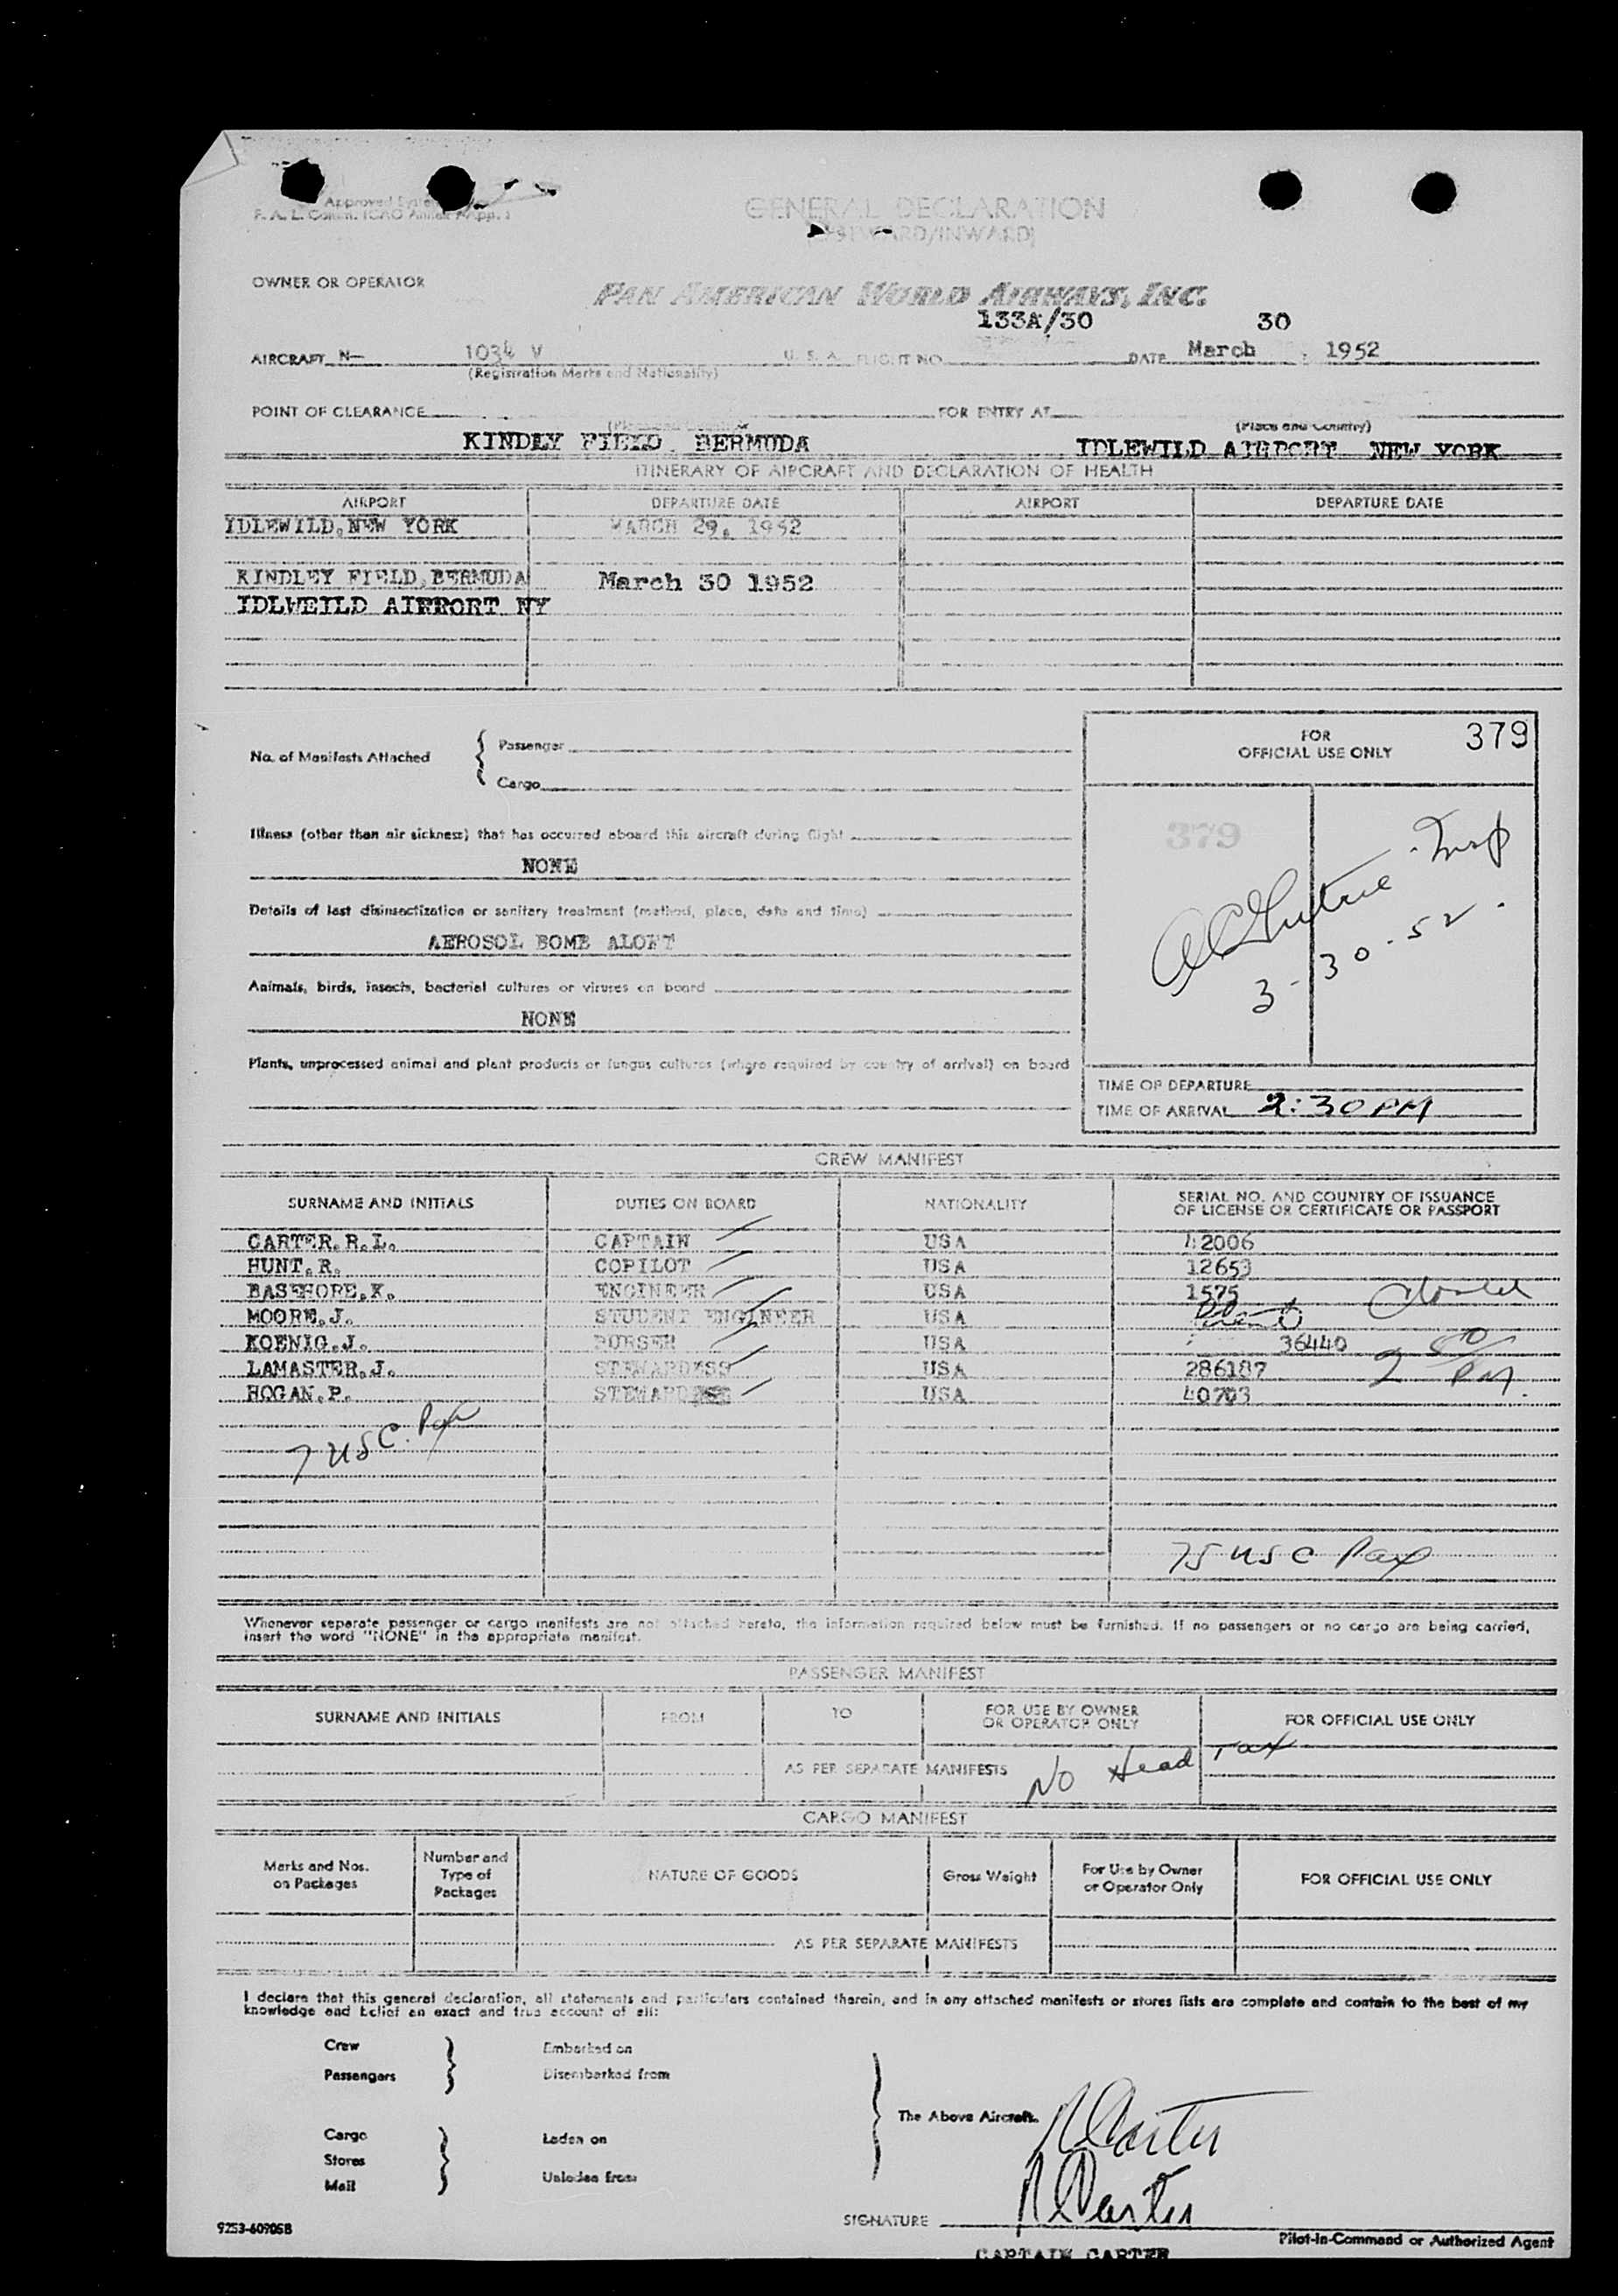 Approved
F. A. L. Comm. ICAO Annex App. 1
GENERAL DECLARATION
(OUTWARD/INWARD)
OWNER OR OPERATOR
PAN AMERICAN WORLD AIRWAYS, INC.
133A/30 30
AIRCRAFT N— 1034 V U. S. A. FLIGHT NO. DATE March , 1952
(Registration Marks and Nationality)
POINT OF CLEARANCE FOR ENTRY AT
(Place and Country) (Place and Country)
KINDLY FIELD, BERMUDA IDLEWILD AIRPORT NEW YORK
ITINERARY OF AIRCRAFT AND DECLARATION OF HEALTH
AIRPORT DEPARTURE DATE AIRPORT DEPARTURE DATE
IDLEWILD, NEW YORK MARCH 29, 1952
KINDLEY FIELD, BERMUDA March 30 1952
IDLWEILD AIRPORT NY
No. of Manifests Attached { Passenger
Cargo
FOR
OFFICIAL USE ONLY
379
379
Illness (other than air sickness) that has occurred aboard this aircraft during flight
NONE
Details of last disinsectization or sanitary treatment (method, place, date and time)
AEROSOL BOMB ALOFT
Animals, birds, insects, bacterial cultures or viruses on board
NONE
Plants, unprocessed animal and plant products or fungus cultures (where required by country of arrival) on board
Insp
3-30-52.
TIME OF DEPARTURE
TIME OF ARRIVAL 2:30 PM
CREW MANIFEST
SURNAME AND INITIALS DUTIES ON BOARD NATIONALITY SERIAL NO. AND COUNTRY OF ISSUANCE
OF LICENSE OR CERTIFICATE OR PASSPORT
CARTER.R.L. CAPTAIN USA 42006
HUNT.R. COPILOT USA 12653
BASEHORE.K. ENGINEER USA 1575
MOORE.J. STUDENT ENGINEER USA
KOENIG.J. PURSER USA 36440
LAMASTER.J. STEWARDESS USA 286187
HOGAN.P. STEWARDESS USA 40703
2 50 PM.
7 USC. Pax
75 USC Pax
Whenever separate passenger or cargo manifests are not attached hereto, the information required below must be furnished. If no passengers or no cargo are being carried,
insert the word "NONE" in the appropriate manifest.
PASSENGER MANIFEST
SURNAME AND INITIALS FROM TO FOR USE BY OWNER
OR OPERATOR ONLY FOR OFFICIAL USE ONLY
AS PER SEPARATE MANIFESTS No Head Tax
CARGO MANIFEST
Marks and Nos.
on Packages
Number and
Type of
Packages
NATURE OF GOODS
Gross Weight
For Use by Owner
or Operator Only
FOR OFFICIAL USE ONLY
AS PER SEPARATE MANIFESTS
I declare that this general declaration, all statements and particulars contained therein, and in any attached manifests or stores lists are complete and contain to the best of my
knowledge and belief an exact and true account of all:
Crew
Passengers
Embarked on
Disembarked from
Cargo
Stores
Mail
Laden on
Unladen from
The Above Aircraft.
R Carter
R Carter
SIGNATURE
9253-60905B
Pilot-in-Command or Authorized Agent
CAPTAIN CARTER